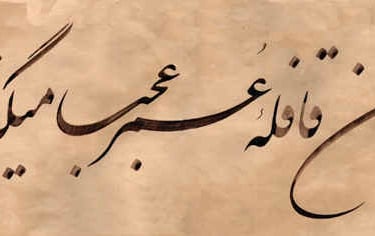 ن قافلهٔ عمر عجب میگ